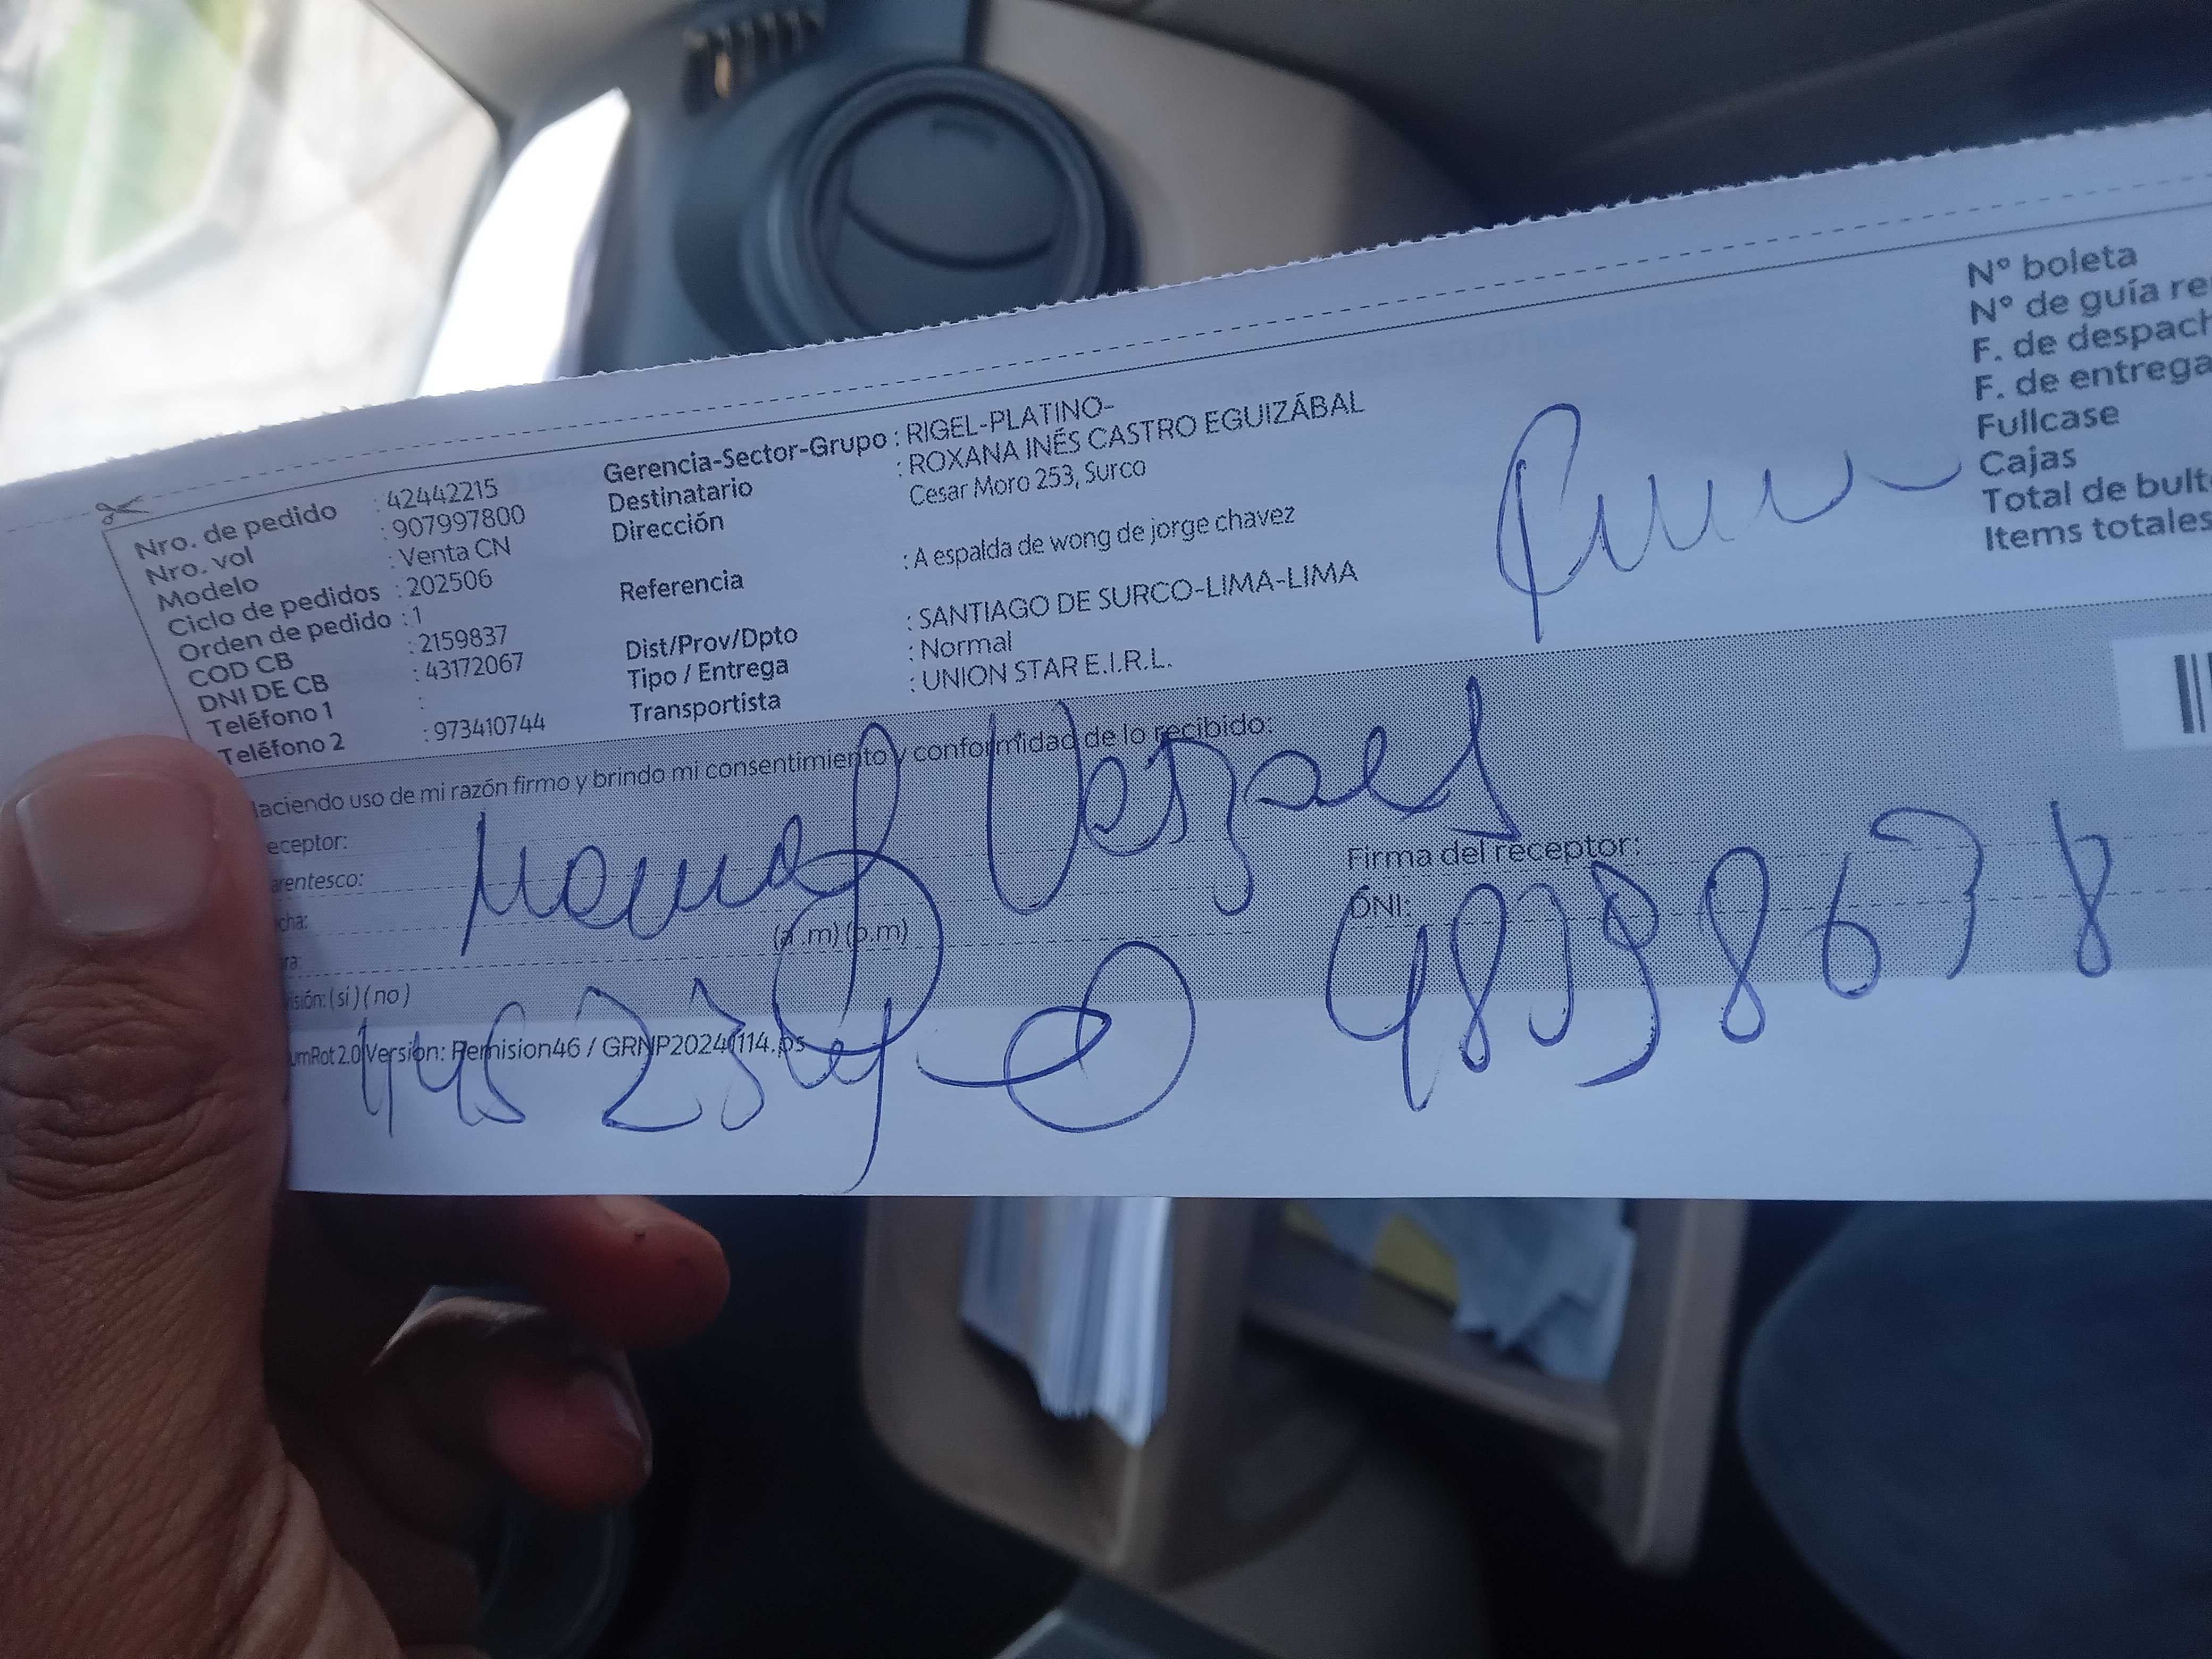 Nro. de pedido : 42442215
Nro. vol : 907997800
Modelo : Venta CN
Ciclo de pedidos : 202506
Orden de pedido : 1
COD CB : 2159837
DNI DE CB : 43172067
Teléfono 1 :
Teléfono 2 : 973410744
Gerencia-Sector-Grupo : RIGEL-PLATINO-
Destinatario : ROXANA INÉS CASTRO EGUIZÁBAL
Dirección Cesar Moro 253, Surco
Referencia : A espalda de wong de jorge chavez
Dist/Prov/Dpto : SANTIAGO DE SURCO-LIMA-LIMA
Tipo / Entrega : Normal
Transportista : UNION STAR E.I.R.L.
N° boleta
N° de guía re
F. de despach
F. de entrega
Fullcase
Cajas
Total de bult
Items totales
laciendo uso de mi razón firmo y brindo mi consentimiento y conformidad de lo recibido:
eceptor:
arentesco:
cha:
ra: (a.m) (p.m)
isión: (si) (no)
Firma del receptor:
DNI:
umRot 2.0 Version: Remision46 / GRNP20241114.ps